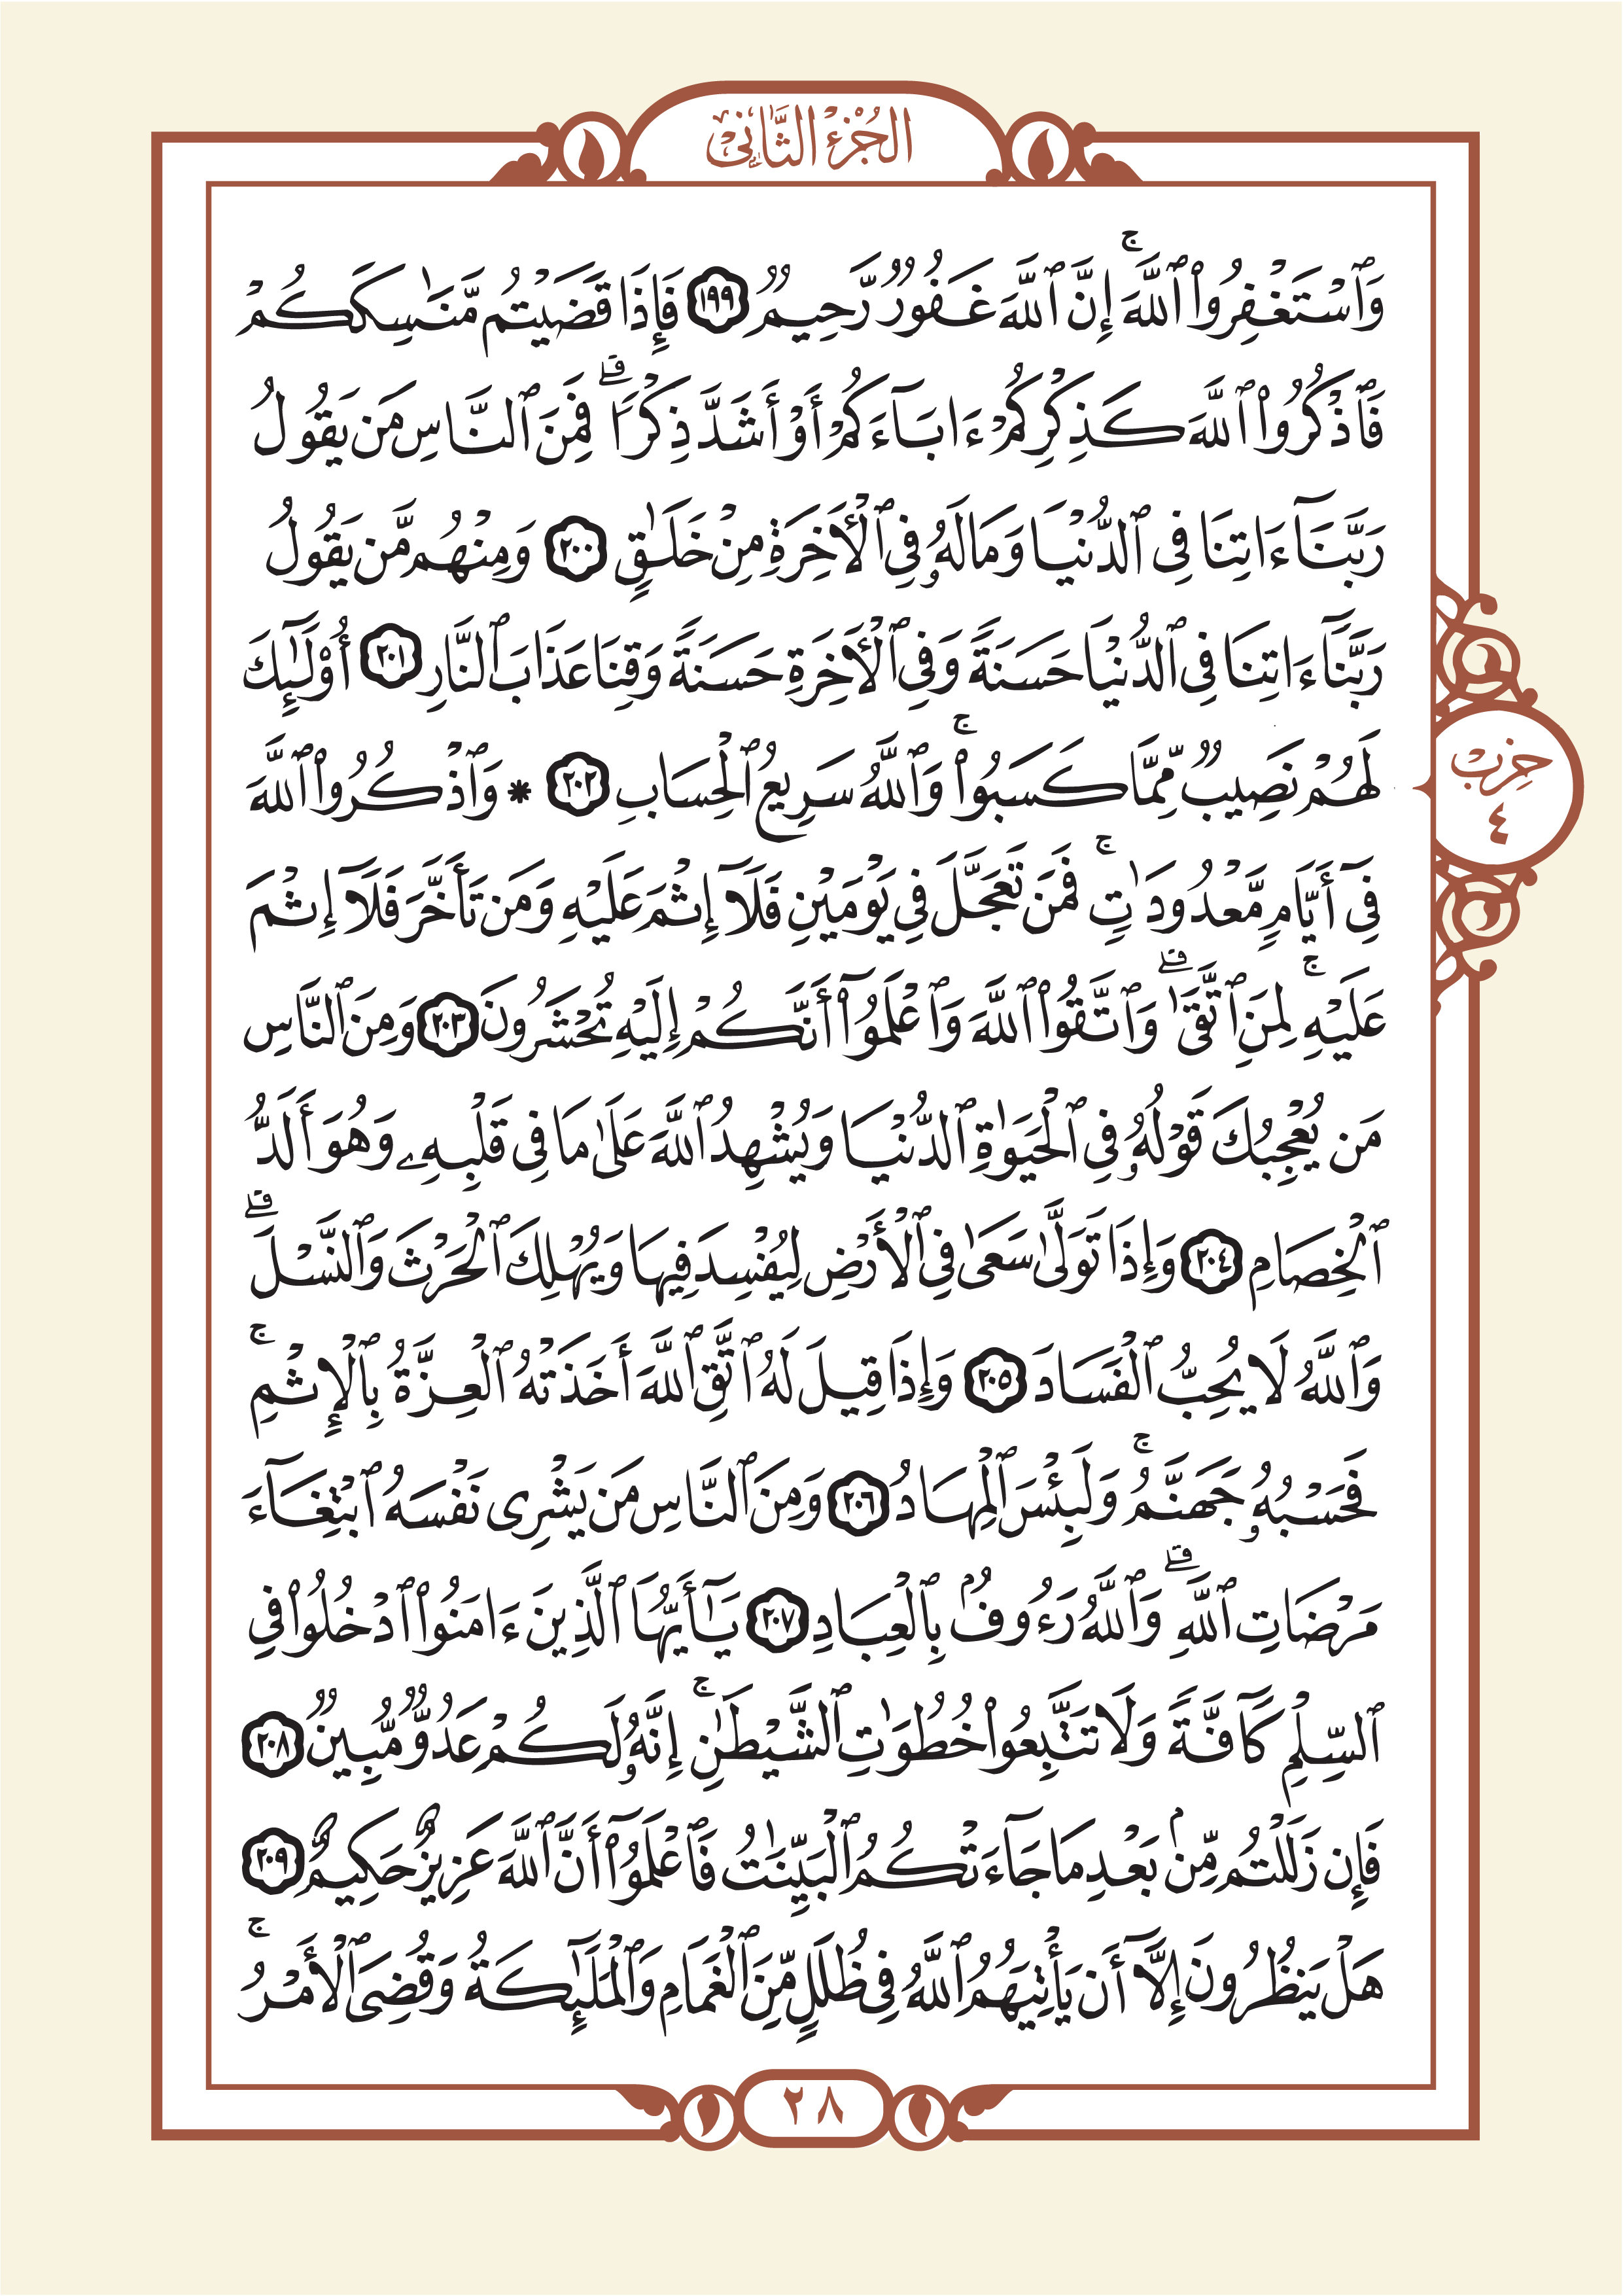 الجُزْءُ الثَّانِي
وَٱسْتَغْفِرُوا۟ ٱللَّهَ ۚ إِنَّ ٱللَّهَ غَفُورٌ رَّحِيمٌ ١٩٩ فَإِذَا قَضَيْتُم مَّنَـٰسِكَكُمْ
فَٱذْكُرُوا۟ ٱللَّهَ كَذِكْرِكُمْ ءَابَآءَكُمْ أَوْ أَشَدَّ ذِكْرًا ۗ فَمِنَ ٱلنَّاسِ مَن يَقُولُ
رَبَّنَآ ءَاتِنَا فِى ٱلدُّنْيَا وَمَا لَهُۥ فِى ٱلْـَٔاخِرَةِ مِنْ خَلَـٰقٍ ٢٠٠ وَمِنْهُم مَّن يَقُولُ
رَبَّنَآ ءَاتِنَا فِى ٱلدُّنْيَا حَسَنَةً وَفِى ٱلْـَٔاخِرَةِ حَسَنَةً وَقِنَا عَذَابَ ٱلنَّارِ ٢٠١ أُو۟لَـٰٓئِكَ
لَهُمْ نَصِيبٌ مِّمَّا كَسَبُوا۟ ۚ وَٱللَّهُ سَرِيعُ ٱلْحِسَابِ ٢٠٢ * وَٱذْكُرُوا۟ ٱللَّهَ
حِزْب
٤
فِىٓ أَيَّامٍ مَّعْدُودَٰتٍ ۚ فَمَن تَعَجَّلَ فِى يَوْمَيْنِ فَلَآ إِثْمَ عَلَيْهِ وَمَن تَأَخَّرَ فَلَآ إِثْمَ
عَلَيْهِ ۚ لِمَنِ ٱتَّقَىٰ ۗ وَٱتَّقُوا۟ ٱللَّهَ وَٱعْلَمُوٓا۟ أَنَّكُمْ إِلَيْهِ تُحْشَرُونَ ٢٠٣ وَمِنَ ٱلنَّاسِ
مَن يُعْجِبُكَ قَوْلُهُۥ فِى ٱلْحَيَوٰةِ ٱلدُّنْيَا وَيُشْهِدُ ٱللَّهَ عَلَىٰ مَا فِى قَلْبِهِۦ وَهُوَ أَلَدُّ
ٱلْخِصَامِ ٢٠٤ وَإِذَا تَوَلَّىٰ سَعَىٰ فِى ٱلْأَرْضِ لِيُفْسِدَ فِيهَا وَيُهْلِكَ ٱلْحَرْثَ وَٱلنَّسْلَ ۗ
وَٱللَّهُ لَا يُحِبُّ ٱلْفَسَادَ ٢٠٥ وَإِذَا قِيلَ لَهُ ٱتَّقِ ٱللَّهَ أَخَذَتْهُ ٱلْعِزَّةُ بِٱلْإِثْمِ ۚ
فَحَسْبُهُۥ جَهَنَّمُ ۚ وَلَبِئْسَ ٱلْمِهَادُ ٢٠٦ وَمِنَ ٱلنَّاسِ مَن يَشْرِى نَفْسَهُ ٱبْتِغَآءَ
مَرْضَاتِ ٱللَّهِ ۗ وَٱللَّهُ رَءُوفٌۢ بِٱلْعِبَادِ ٢٠٧ يَـٰٓأَيُّهَا ٱلَّذِينَ ءَامَنُوا۟ ٱدْخُلُوا۟ فِى
ٱلسِّلْمِ كَآفَّةً وَلَا تَتَّبِعُوا۟ خُطُوَٰتِ ٱلشَّيْطَـٰنِ ۚ إِنَّهُۥ لَكُمْ عَدُوٌّ مُّبِينٌ ٢٠٨
فَإِن زَلَلْتُم مِّنۢ بَعْدِ مَا جَآءَتْكُمُ ٱلْبَيِّنَـٰتُ فَٱعْلَمُوٓا۟ أَنَّ ٱللَّهَ عَزِيزٌ حَكِيمٌ ٢٠٩
هَلْ يَنظُرُونَ إِلَّآ أَن يَأْتِيَهُمُ ٱللَّهُ فِى ظُلَلٍ مِّنَ ٱلْغَمَامِ وَٱلْمَلَـٰٓئِكَةُ وَقُضِىَ ٱلْأَمْرُ ۚ
٢٨